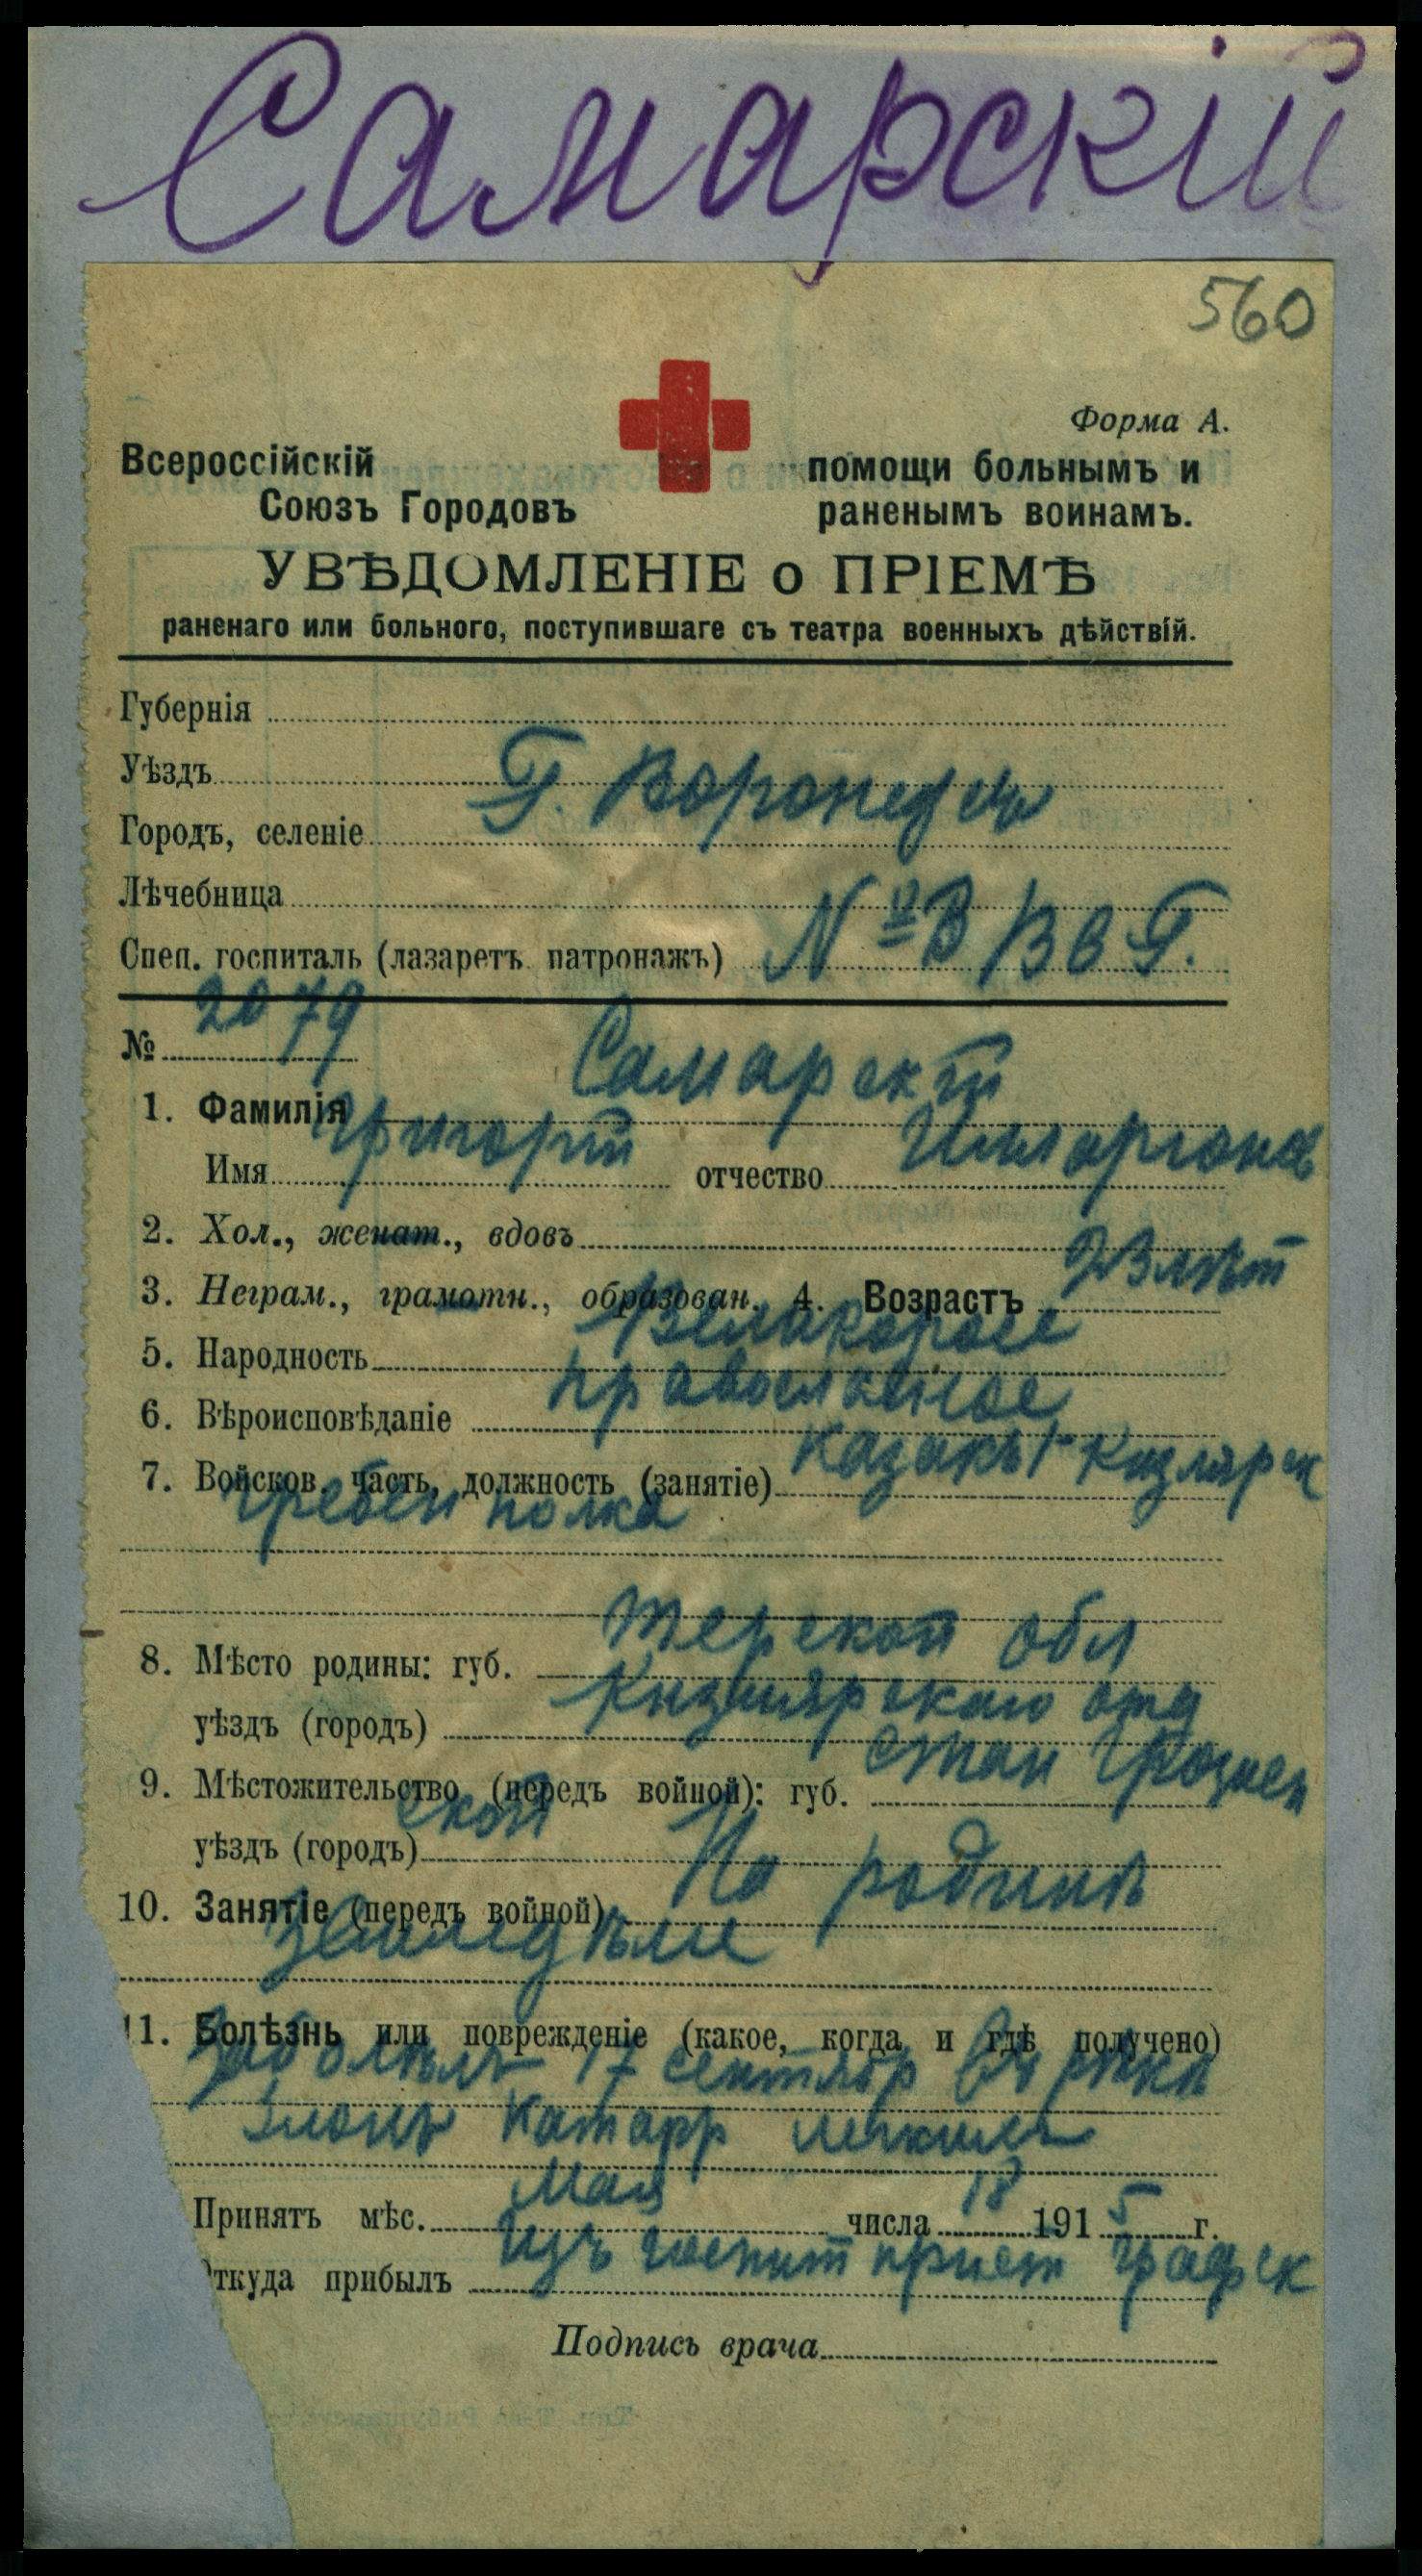 Самарскій
560
Форма А.
Всероссійскій помощи больнымъ и
Союзъ Городовъ раненымъ воинамъ.
УВѢДОМЛЕНІЕ о ПРІЕМѢ
раненаго или больного, поступившаге съ театра военныхъ дѣйствій.
Губернія
Уѣздъ Г. Воронежъ
Городъ, селеніе
Лѣчебница
Спец. госпиталь (лазаретъ патронажъ) №
№ 2079
1. Фамилія Самарскій
Имя Григорій отчество Илларіонов
2. Хол., женат., вдовъ
3. Неграм., грамотн., образован. 4. Возрастъ лѣт
5. Народность
6. Вѣроисповѣданіе православное
7. Войсков. часть, должность (занятіе) казакъ 1 Кизлярск
Гребен полка
8. Мѣсто родины: губ. Терской обл
уѣздъ (городъ) Кизлярскаго отд
9. Мѣстожительство (передъ войной): губ. стан Грознен
уѣздъ (городъ) ской
10. Занятіе (передъ войной) На родинѣ
земледѣліе
11. Болѣзнь или поврежденіе (какое, когда и гдѣ получено)
заболѣлъ 17 сентябр
Катарр легкихъ
Принятъ мѣс. Мая числа 18 1915 г.
Откуда прибылъ Изъ госпит прием Графск
Подпись врача